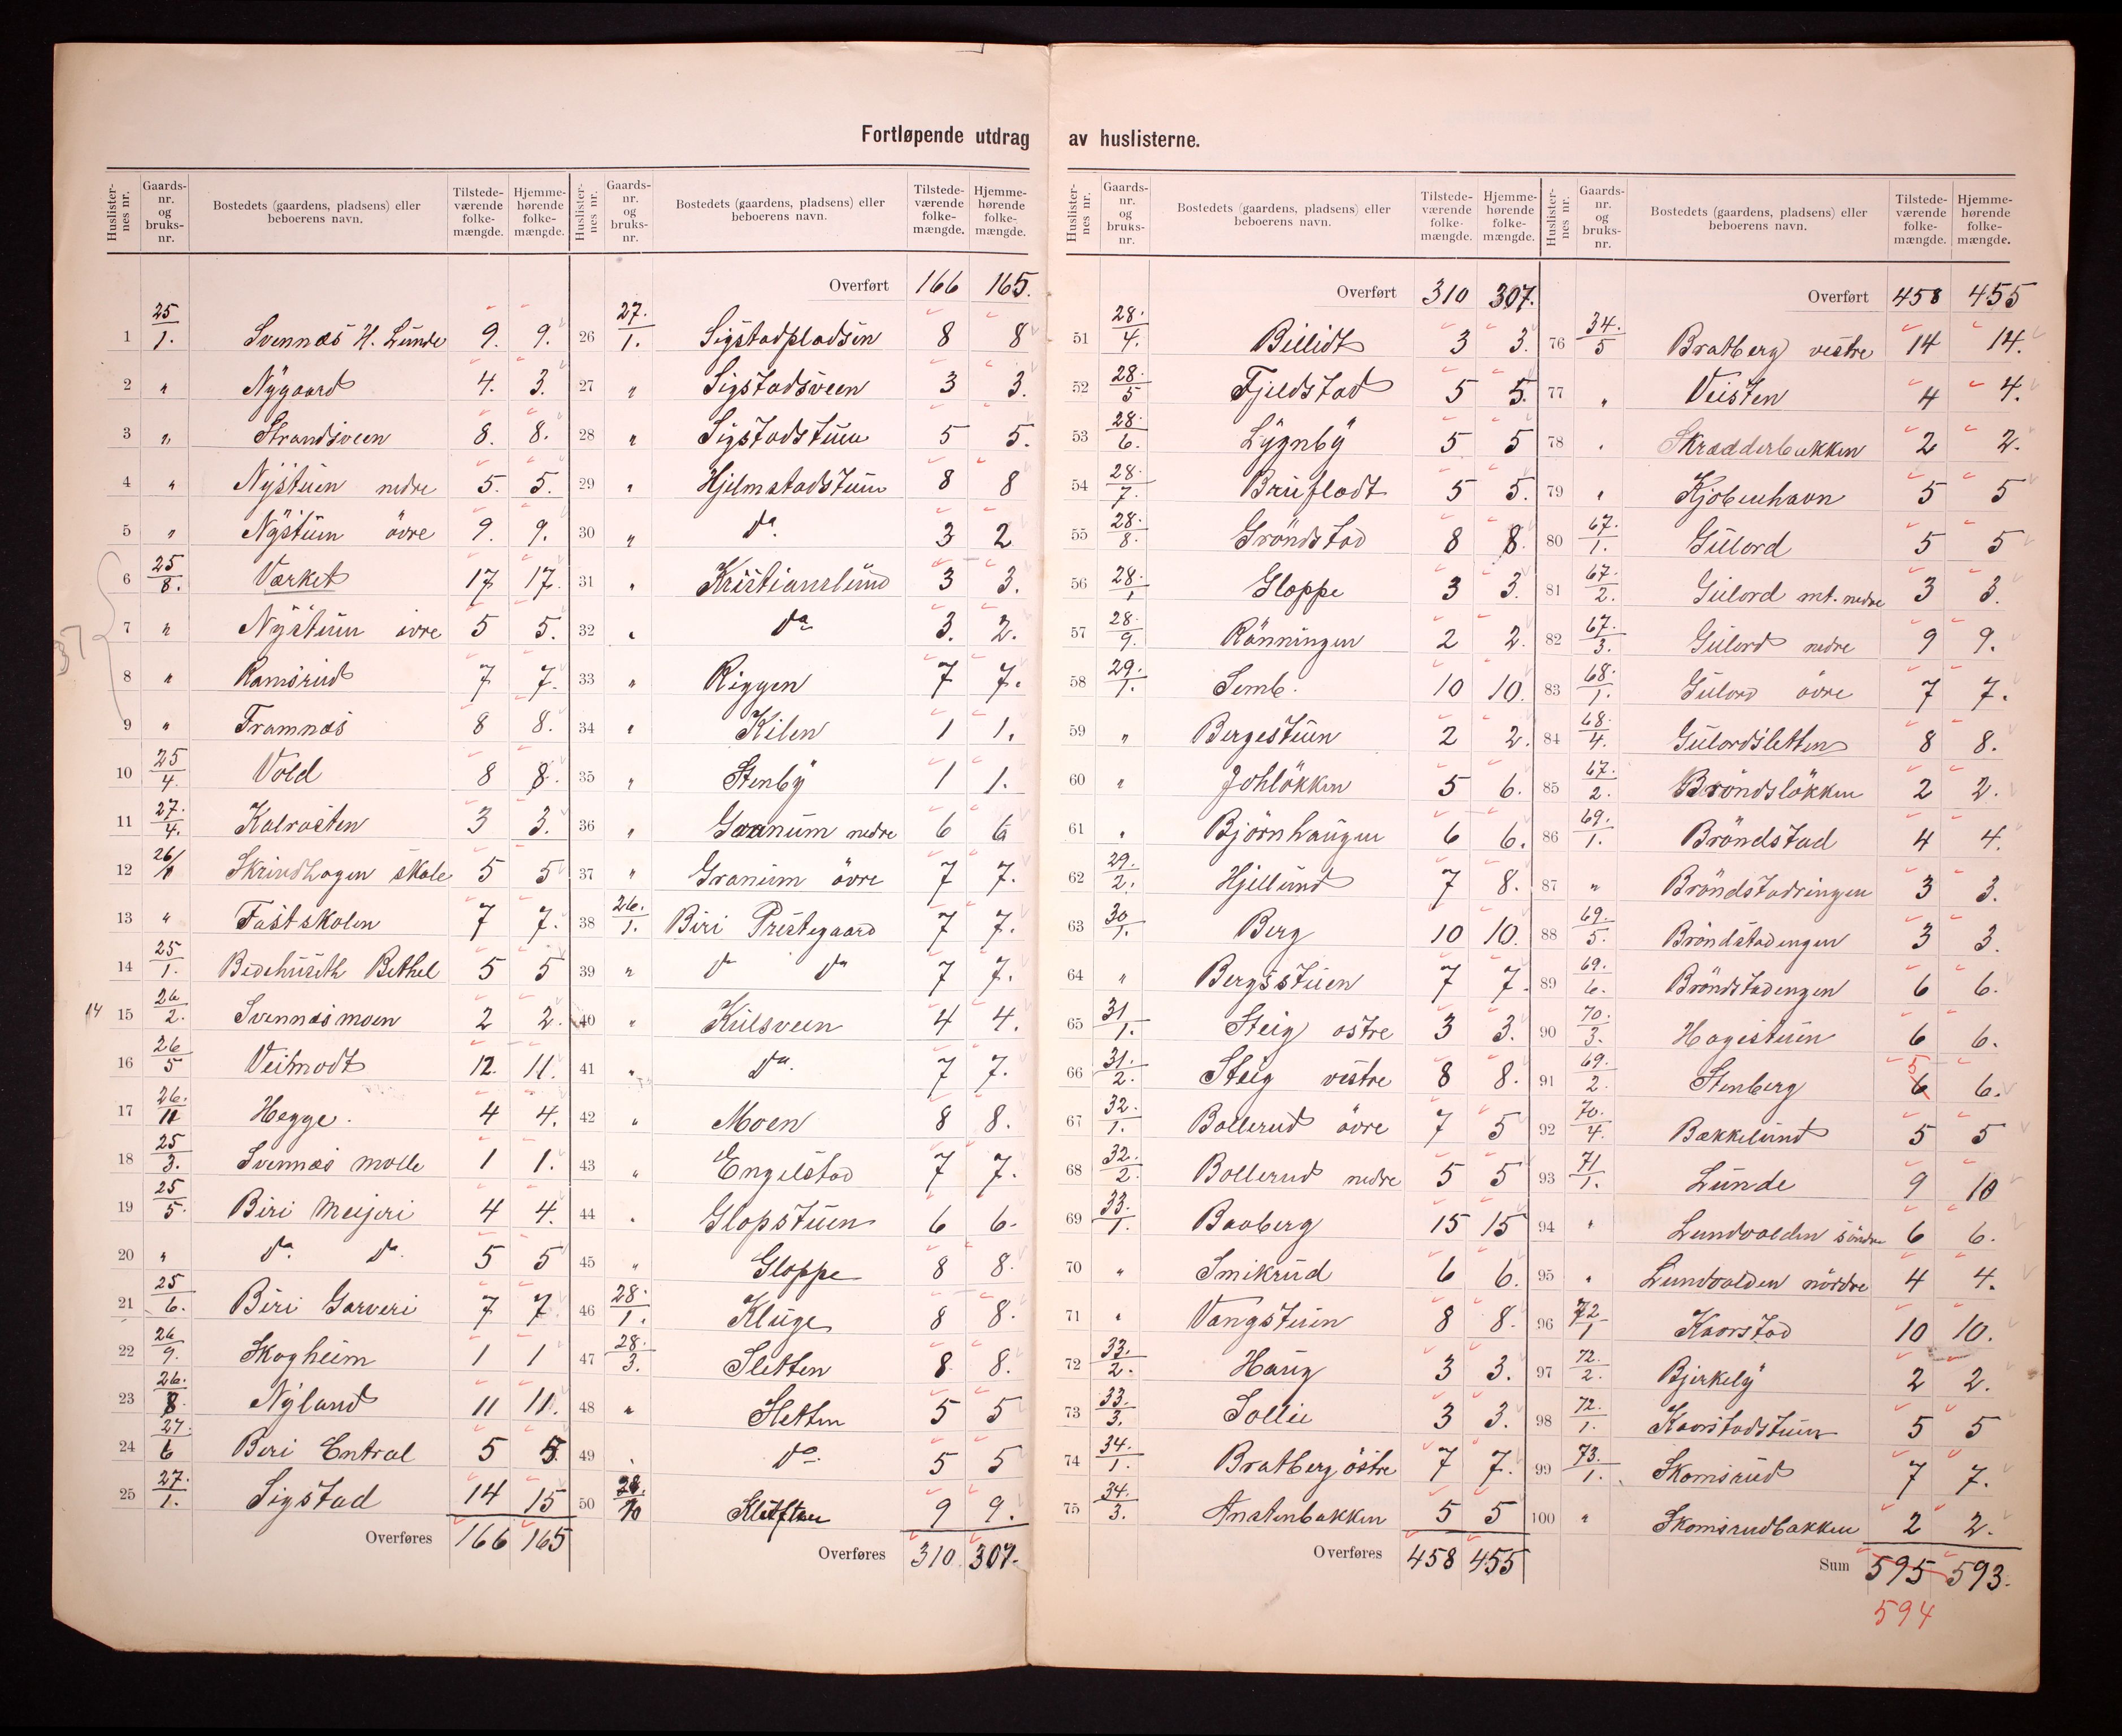 Fortløpende utdrag av huslisterne.
Huslister-nes nr. Gaards-nr. og bruks-nr. Bostedets (gaardens, pladsens) eller beboerens navn. Tilstede-værende folke-mængde. Hjemme-hørende folke-mængde.
1 25/1. Svennæs H. Lunde 9. 9.
2 " Nygaard 4. 3.
3 " Strandsveen 8. 8.
4 " Nystuen nedre 5. 5.
5 " Nystuen övre 9. 9.
37
6 25/8. Værket 17 17.
7 " Nystuen övre 5 5.
8 " Ramsrud 7 7.
9 " Framnæs 8 8.
10 25/4. Vold 8 8.
11 27./4. Kalrosten 3 3.
12 26/ Skrindhagen skole 5 5
13 " Fastskolen 7 7.
14 25/1. Bethel 5 5
14 15 26/2. Svennæsmoen 2 2.
16 26/5 Veitmodt 12. 11.
17 26./11 Hegge. 4 4.
18 25/3. Svennæs mölle 1 1.
19 25/5. Biri Meijeri 4 4.
20 " Do. Do. 5 5
21 25/6. Biri Garveri 7 7
22 26/9. Skogheim 1 1
23 26./8. Nyland 11 11.
24 27./6 Biri Sentral 5 5.
25 27./1. Sigstad 14 15
Overføres 166 165
Huslister-nes nr. Gaards-nr. og bruks-nr. Bostedets (gaardens, pladsens) eller beboerens navn. Tilstede-værende folke-mængde. Hjemme-hørende folke-mængde.
Overført 166 165.
26 27./1. Sigstadpladsen 8 8
27 " Sigstadsveen 3 3.
28 " Sigstadstuen 5 5.
29 " Hjelmstadstuen 8 8
30 " Do. 3 2
31 " Kristianslund 3 3.
32 " Do 3. 2.
33 " Riggen 7 7.
34 " Kilen 1 1.
35 " Stenby 1 1.
36 " Granum nedre 6 6
37 " Granum övre 7 7.
38 26./1. Biri Prestegaard 7 7.
39 " Do Do 7 7.
40 " Kulsveen 4 4.
41 " Do. 7 7.
42 " Moen 8 8.
43 " Engelstad 7 7.
44 " Glopstuen 6 6.
45 " Gloppe 8 8.
46 28./1. Kluge 8 8.
47 28./3. Sletten 8 8.
48 " Sletten 5 5
49 " Do. 5 5
50 28./10 9 9.
Overføres 310 307.
Huslister-nes nr. Gaards-nr. og bruks-nr. Bostedets (gaardens, pladsens) eller beboerens navn. Tilstede-værende folke-mængde. Hjemme-hørende folke-mængde.
Overført 310 307.
51 28./4. Billidt 3 3.
52 28./5 Fjeldstad 5 5.
53 28./6. Lygnby 5 5
54 28./7. Brufladt 5 5.
55 28./8. Gröndstad 8 8.
56 28./1 Gloppe 3 3.
57 28./9. Rönningen 2 2.
58 29./1. Semb. 10 10.
59 " Bergestuen 2 2.
60 " Johlökken 5 6.
61 " Björnhaugen 6 6.
62 29./2. Hjellund 7 8.
63 30/1. Berg 10 10.
64 " Bergsstuen 7 7.
65 31/1. Steig östre 3 3.
66 31./2. Steig vestre 8 8.
67 32./1. Bollerud övre 7 5
68 32./2. Bollerud nedre 5 5
69 33./1. Baaberg 15 15
70 " Smikrud 6 6.
71 " Vangstuen 8 8.
72 33./2. Haug 3 3.
73 33./3. Sollie 3 3.
74 34./1. Bratberg östre 7 7.
75 34./3. Anstenbakken 5 5
Overføres 458 455
Huslister-nes nr. Gaards-nr. og bruks-nr. Bostedets (gaardens, pladsens) eller beboerens navn. Tilstede-værende folke-mængde. Hjemme-hørende folke-mængde.
Overført 458 455
76 34./5 Bratberg vestre 14 14.
77 " Veisten 4 4.
78 " Skrædderbakken 2 2.
79 " Kjöbenhavn 5 5
80 67./1. Gulord 5 5
81 67./2. Gulord mt. nedre 3 3.
82 67./3. Gulord nedre 9 9.
83 68./1. Gulord övre 7 7.
84 68./4. Gulordsletten 8 8.
85 67./2. Bröndslökken 2 2.
86 69./1. Bröndstad 4 4.
87 " Bröndstadringen 3 3.
88 69./5. Bröndstadengen 3 3.
89 69./6. Bröndstadengen 6 6.
90 70./3. Hagestuen 6 6.
91 69./2. Stenberg 6 5 6.
92 70./4. Bakkelund 5 5
93 71/1. Lunde 9 10
94 " Lundvolden söndre 6 6.
95 " Lundvolden nördre 4 4.
96 72/1 Kaorstad 10 10.
97 72./2. Bjerkely 2 2.
98 72./1. Kaorstadstuen 5 5
99 73./1. Skomsrud 7 7.
100 " Skomsrudbakken 2 2.
Sum 595 593.
594